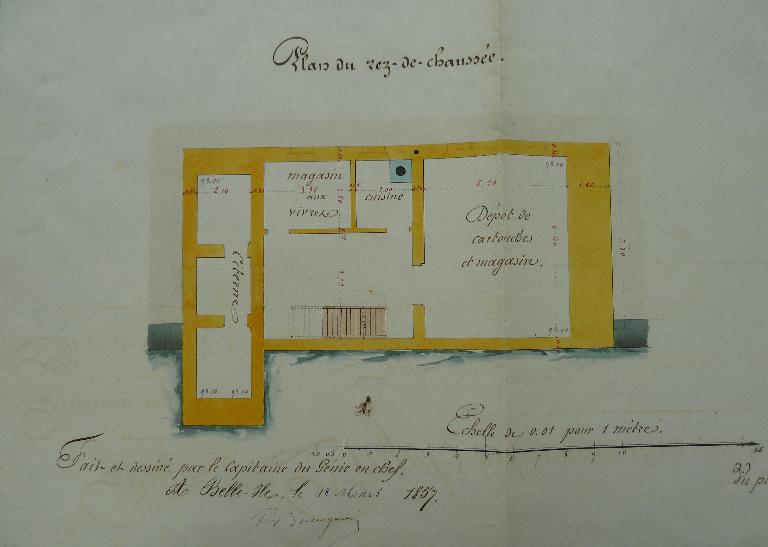 Plan du rez-de-chaussée.
magasin
aux
vivres
cuisine
Dépot de
cartouches
et magasin.
Citerne
98.00
2.10
3.35
2.00
5.50
1.60
98.00
98.00
Echelle de 0.01 pour 1 mètre.
Fait et dessiné par le Capitaine du Génie en chef.
A Belle-Ile, le 18 Mars 1857.
du